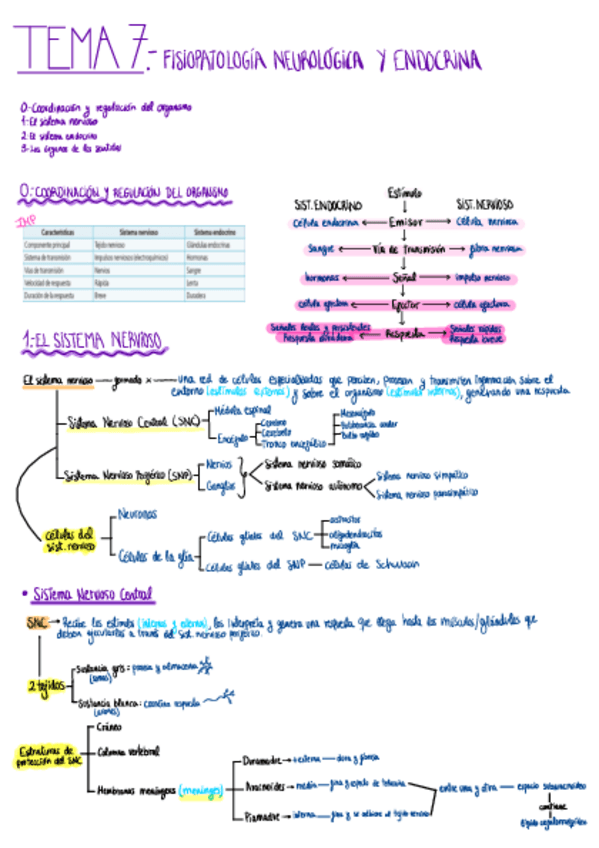 TEMA 7.- FISIOPATOLOGÍA NEUROLÓGICA Y ENDOCRINA
0-Coordinación y regulación del organismo
1-El sistema nervioso
2-El sistema endocrino
3-Los órganos de los sentidos
0.-COORDINACIÓN Y REGULACIÓN DEL ORGANISMO
IMP
Características Sistema nervioso Sistema endocrino
Componente principal Tejido nervioso Glándulas endocrinas
Sistema de transmisión Impulsos nerviosos (electroquímicos) Hormonas
Vías de transmisión Nervios Sangre
Velocidad de respuesta Rápida Lenta
Duración de la respuesta Breve Duradera
Estímulo
SIST. ENDOCRINO SIST. NERVIOSO
célula endocrina ← Emisor → célula nerviosa
sangre ← Vía de Transmisión → fibra nerviosa
hormonas ← Señal → impulso nervioso
célula efectora ← Efector → célula efectora
Señales lentas y persistentes
Respuesta duradera ← Respuesta → Señales rápidas
Respuesta breve
1.-EL SISTEMA NERVIOSO
El sistema nervioso — formado x — una red de células especializadas que perciben, procesan y transmiten información sobre el
entorno (estímulos externos) y sobre el organismo (estímulos internos), generando una respuesta
Sistema Nervioso Central (SNC)
Médula espinal
Encéfalo
Cerebro
Cerebelo
Tronco encefálico
Mesencéfalo
Bulbo raquídeo
Sistema Nervioso Periférico (SNP)
Nervios
Ganglios
Sistema nervioso somático
Sistema nervioso autónomo
Sistema nervioso simpático
Sistema nervioso parasimpático
células del
sist. nervioso
Neuronas
Células de la glía
Células gliales del SNC
astrocitos
oligodendrocitos
microglía
Células gliales del SNP — células de Schwann
• Sistema Nervioso Central
SNC → Recibe los estímulos (internos y externos), los interpreta y genera una respuesta que llega hasta los músculos/glándulas que
deben ejecutarlas a través del sist. nervioso periférico.
2 tejidos
Sustancia gris: procesa y almacena
(somas)
Sustancia blanca: coordina respuesta
(axones)
Estructuras de
protección del SNC
Cráneo
Columna vertebral
Membranas meníngeas (meninges)
Duramadre → + externa — dura y gruesa
Aracnoides → media — fina y
Piamadre → interna — fina y se adhiere al tejido nervioso
entre una y otra — espacio subaracnoideo
contiene
líquido cefalorraquídeo